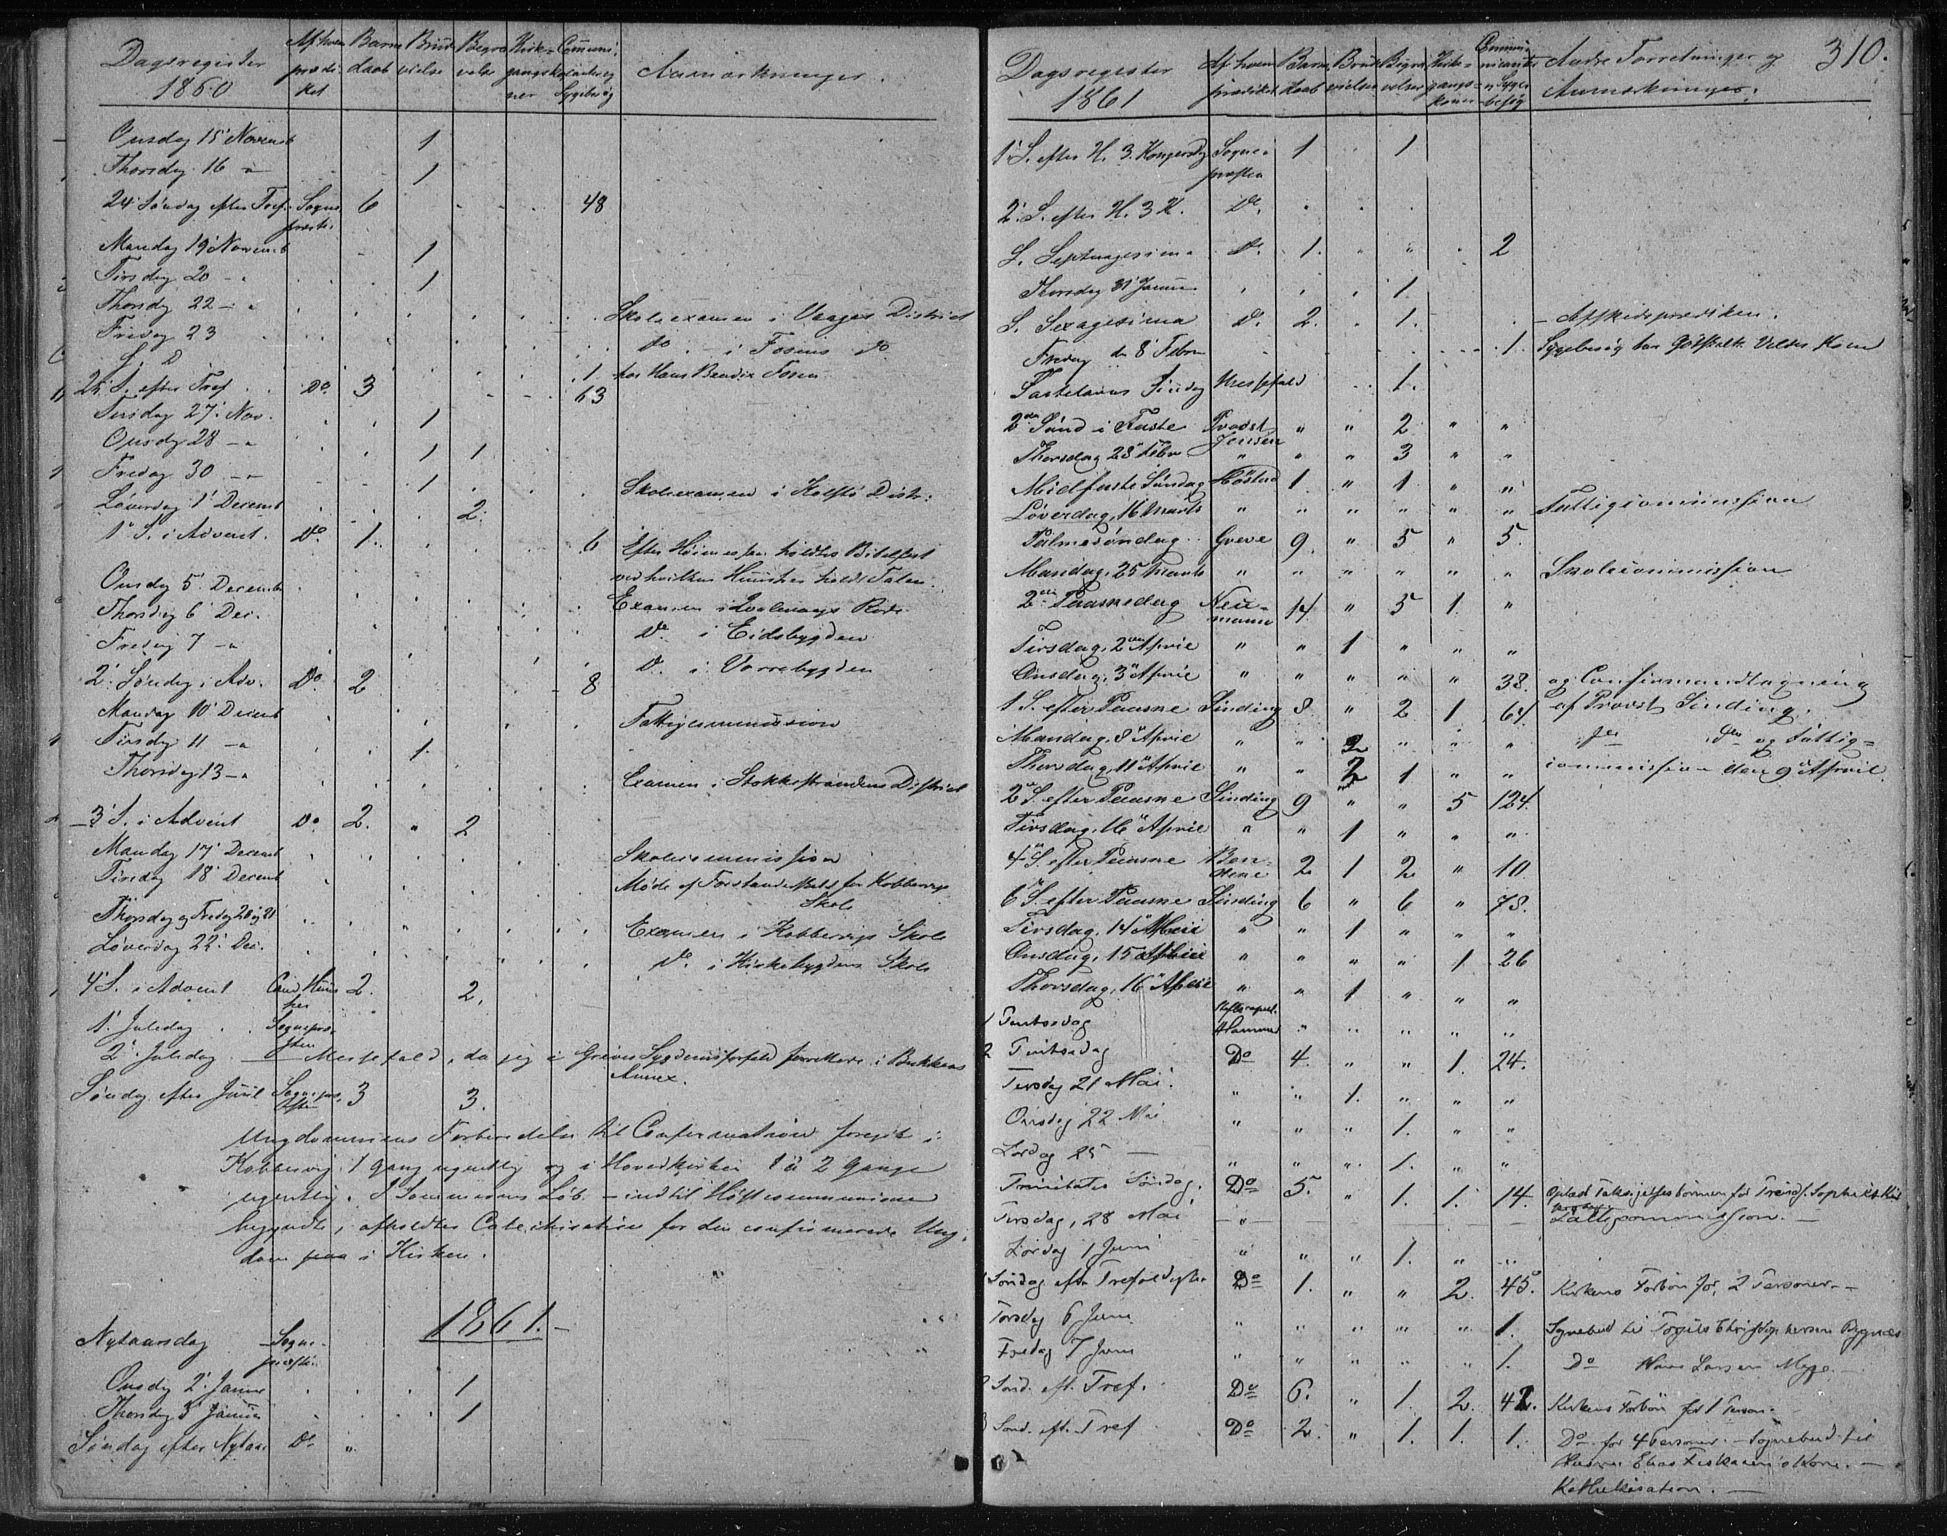 Dagsregister 1860 | Af hvem prædiket | Barnedaab | Brudevielse | Begravelse | Kirkegangskoner | Communicanter og Sygebesøg | Anmærkninger.
Onsdag 15 Novemb 1
Thorsdag 16 - 1
24 Søndag efter Tref. Sognepræsten 6 48
Mandag 19 Novemb 1
Tirsdag 20 - 1
Thorsdag 22 - Skoleexamen i Vaages District
Fredag 23 do - i Fosens do
S. D 1 hos Hans Bendix Fosen
25 S. efter Tref. Do. 3 63
Tirsdag 27 Nov. 1
Onsdag 28 - 1 1
Fredag 30 - 1 Skoleexamen i Kolstø Distr:
Løverdag 1 Decemb 2.
1 S. i Advent. Do. 1. 6 Efter Høimessen holdtes Bibelfest
ved hvilken holdt Talen.
Onsdag 5 December Examen i
Thorsdag 6 Dec. Do. i Eidsbygden
Fredag 7 - Do. i Vorrebygden
2 Søndag i Adv. Do. 2 8
Mandag 10 Decemb Fattigcommission
Tirsdag 11 - 1.
Thorsdag 13 - Examen i Stokkestrandens District
3 S. i Advent Do. 2. " 2
Mandag 17 Decemb Skolecommission
Tirsdag 18 Decemb Møde af Forstanderskab for Kobbervigs Skole
Thorsdag og Fredag 20 og 21 Examen i Kobbervigs Skole
Løverdag 22 Dec. Do. i Kirkebygdens Skole
4 S. i Advent Cand 2. 2.
1 Juledag Sognepræsten
2 Juledag - Messefald, da jeg i Greves Sygdomsforfald forrettede i Bukkens Annex.
Søndag efter Juul Sognepræsten 3 3.
Ungdommens Forberedelse til Confirmation foregik i
Kobbervig 1 Gang ugentlig og i Hovedkirken 1 à 2 Gange
ugentlig. I Sommerens Løb - indtil Høstcommunionen
begyndte, afholdtes Catechisation for den confirmerede Ung-
dom i Kirken.
1861.-
Nytaarsdag Sognepræsten
Onsdag 2 Januar 1
Thorsdag 3 Januar 1
Søndag efter Nytaar Do. "
310.
Dagsregister 1861 | Af hvem prædiket | Barnedaab | Brudevielser | Begravelser | Kirkegangskoner | Communicanter og Sygebesøg | Andre Forretninger og Anmærkninger.
1 S. efter H. 3 Kongersdag Sognepræsten 1 1
2 S. efter H. 3 K. Do.
S. Septuagesima Do. 1. " " 2
Thorsdag 31 Januar 1.
S. Sexagesima Do. 2. 1. - Afskedsprædiken.
Fredag den 8 Febru 1. Sygebesøg hos Kone
Fastelavns Søndag Messefald 1.
2den Sønd i Faste Provst Jensen " " 2 " "
Thorsdag 28 Febr " " " 3 " "
Midfaste Søndag Høstad 1. " 1 " "
Løverdag, 16 Marts " " " " " " Fattigcommission
Palmesøndag Greve 9. " 5 " 5.
Mandag, 25 Marts " " " " " " Skolecommission
2den Paaskedag Neumann 14. " 5 1. "
Tirsdag, 2den April " " 1 " " "
Onsdag, 3die April " " " " " 38. og Confirmandtagning
1 S. efter Paaske Sinding 8. " 2 1 64. af Provst Sinding.
Mandag, 8de April " " 2 " " " og Fattig=
Thorsdag, 11te April " " 2 1 " " commission den 9de April.
2 S. efter Paaske Sinding 9 " " 5 124.
Tirsdag, 16de April " " 1 " " "
4 S. efter Paaske 2 1 2 " 10
6 S. efter Paaske Sinding 6 " 6 " 78.
Tirsdag, 14 Mai " " 1 " " "
Onsdag, 15 Mai " " " " 1 26
Thorsdag, 16 " " 1 " " "
1 Pintsedag Hammer " " " " "
2 Pintsedag Do 4. " " 1. 24.
Tirsdag 21 Mai. " " 1. " " "
Onsdag 22 Mai " " " 1. " "
Lørdag 25 - " " " 1. " "
Trinitatis Søndag. Do 5. " 1. 1. 14.
Tirsdag, 28 Mai - " - Fattigcommission. -
Lørdag 1 Juni " " " 1. " "
Søndag eft. Trefoldigh. Do 1. " " 2. 45. Kirkens Forbøn for 2 Personer. -
Torsdag 6 Juni " " " " " 1. Sognebud til Bygnæs
Fredag 7 Juni " " " " " 1. Do Hans Larsen
2 Sønd. eft. Tref. Do 6. " 1. 2. 42. Kirkens Forbøn for 1 Person. -
3 Sønd. eft. Tref Do 2. " 1. 1. 1. Do for 4 Personer. - Sognebud til
Elias Kone. -
Kathekisation. -